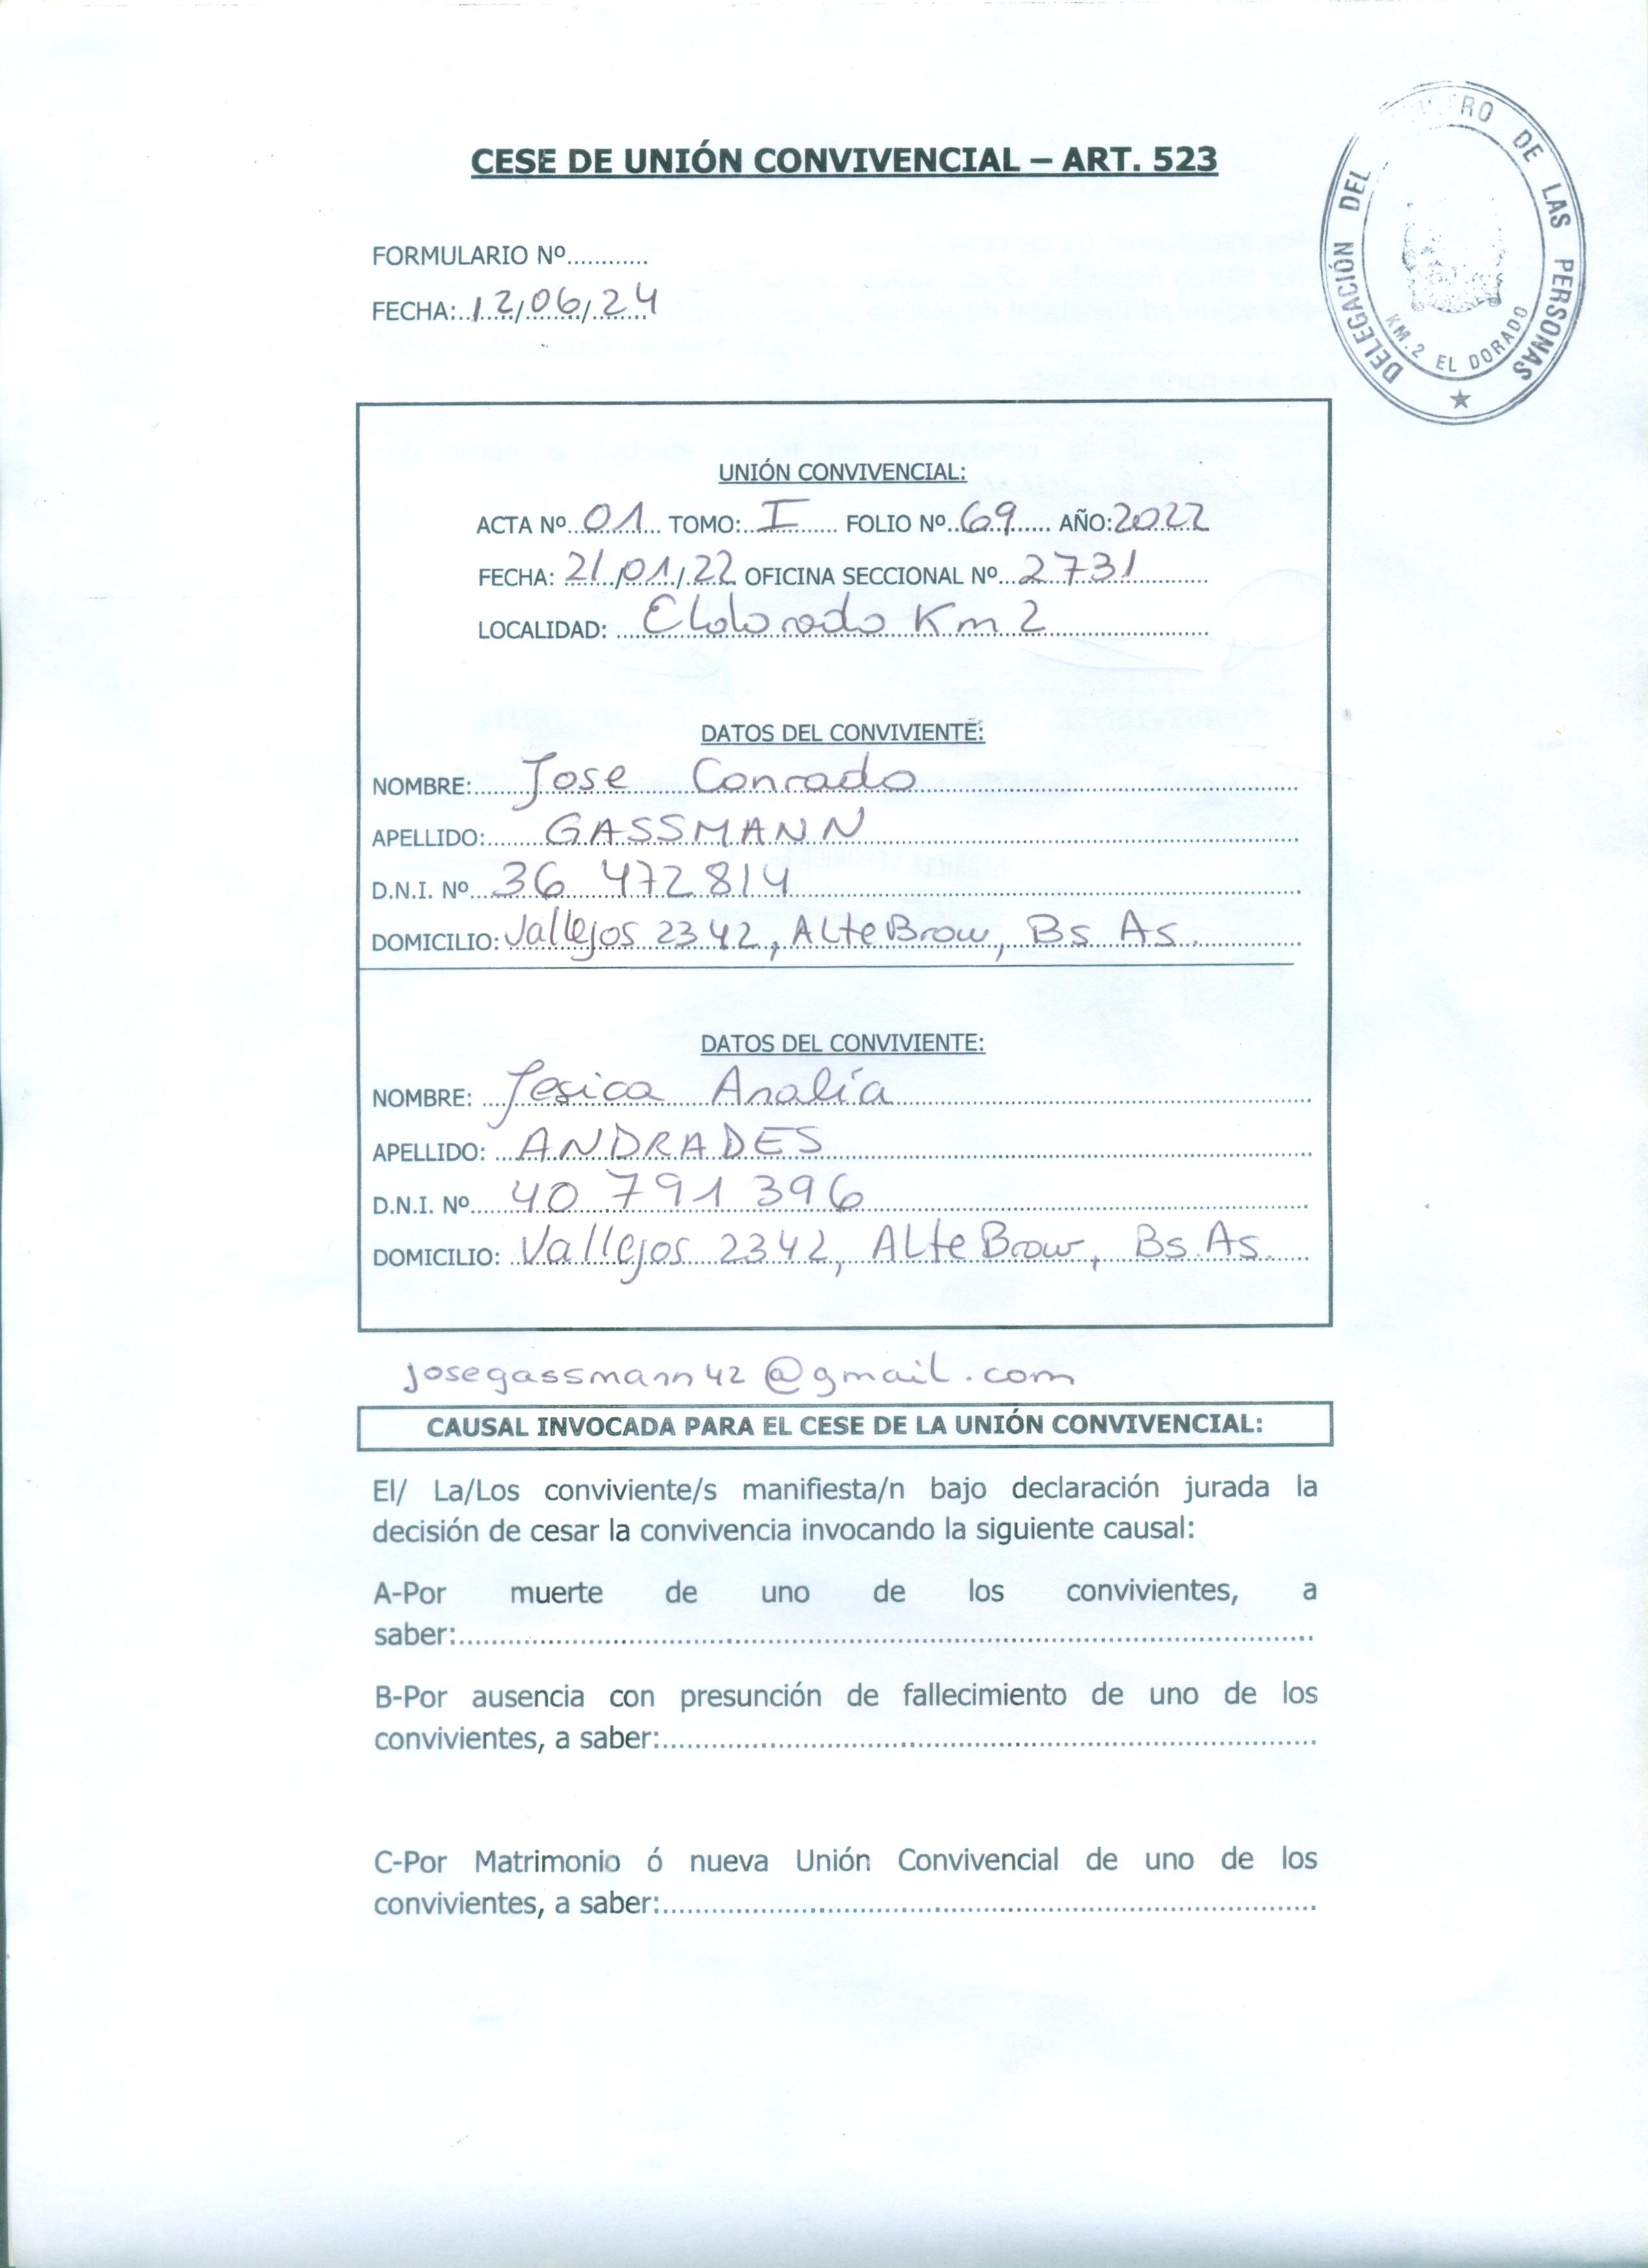 CESE DE UNIÓN CONVIVENCIAL – ART. 523
DELEGACIÓN DEL RO DE LAS PERSONAS
KM. 2 EL DORADO
FORMULARIO Nº............
FECHA: 12/06/24
UNIÓN CONVIVENCIAL:
ACTA Nº 01 TOMO: I FOLIO Nº 69 AÑO: 2022
FECHA: 21/01/22 OFICINA SECCIONAL Nº 2731
LOCALIDAD: Eldorado Km 2
DATOS DEL CONVIVIENTE:
NOMBRE: Jose Conrado
APELLIDO: GASSMANN
D.N.I. Nº 36 472814
DOMICILIO: Vallejos 2342, ALte Brow, Bs As.
DATOS DEL CONVIVIENTE:
NOMBRE: Jesica Analía
APELLIDO: ANDRADES
D.N.I. Nº 40 791 396
DOMICILIO: Vallejos 2342, ALte Brow, Bs. As.
josegassmann42@gmail.com
CAUSAL INVOCADA PARA EL CESE DE LA UNIÓN CONVIVENCIAL:
El/ La/Los conviviente/s manifiesta/n bajo declaración jurada la
decisión de cesar la convivencia invocando la siguiente causal:
A-Por muerte de uno de los convivientes, a
saber:
B-Por ausencia con presunción de fallecimiento de uno de los
convivientes, a saber:
C-Por Matrimonio ó nueva Unión Convivencial de uno de los
convivientes, a saber: